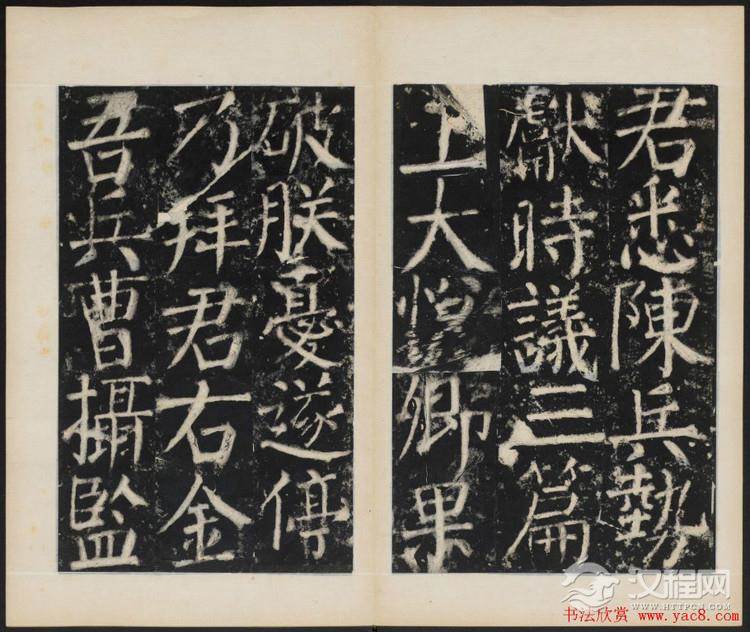 君悉陳兵勢
獻時議三篇
上大悅卿果
破朕憂遂停
乃拜君右金
吾兵曹攝監
汉程网
HTTP://WWW.HTTPCN.COM
书法欣赏 www.yac8.com